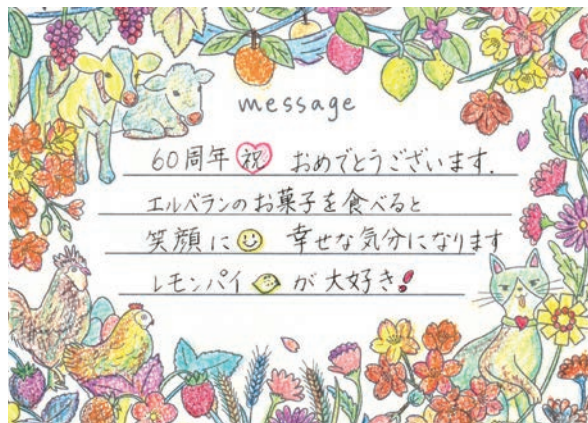 message
60周年 祝 おめでとうございます.
エルベランのお菓子を食べると
笑顔に 幸せな気分になります
レモンパイ が大好き!